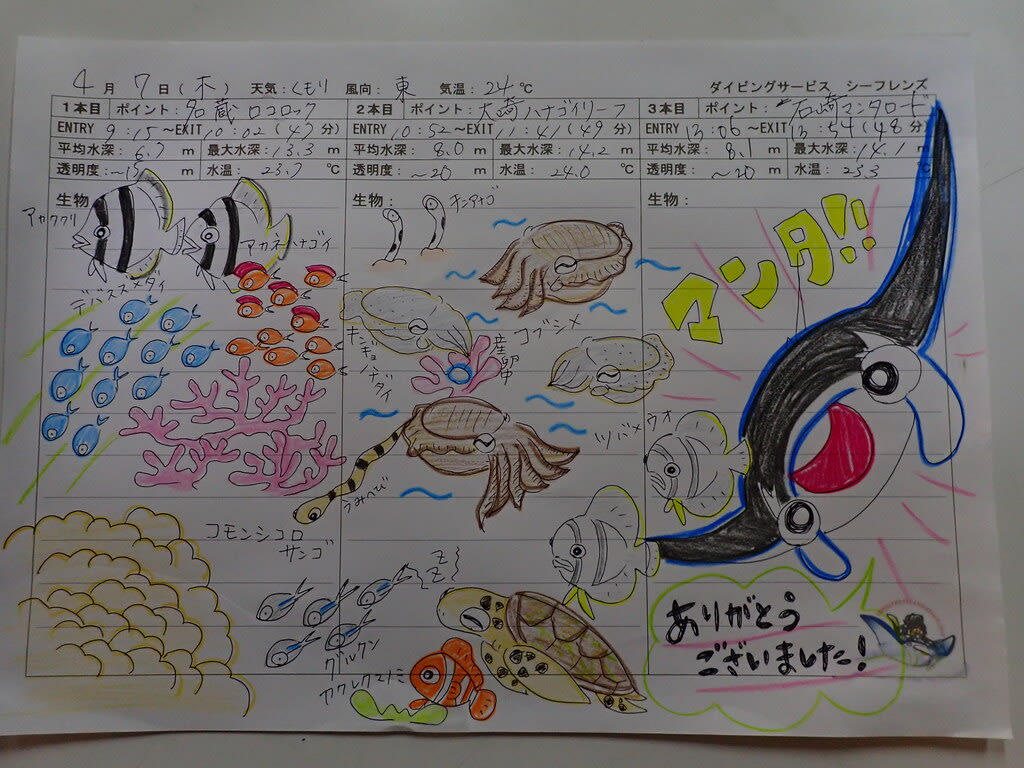 4月7日(木) 天気:くもり 風向:東 気温:24℃ ダイビングサービス シーフレンズ
1本目 ポイント:名蔵ロコロック 2本目 ポイント:大崎ハナゴイリーフ 3本目 ポイント:石崎マンタロード
ENTRY 9:15~EXIT 10:02(47分) ENTRY 10:52~EXIT 11:41(49分) ENTRY 13:06~EXIT 13:54(48分)
平均水深:6.7m 最大水深:13.3m 平均水深:8.0m 最大水深:14.2m 平均水深:8.1m 最大水深:14.1m
透明度:~15m 水温:23.7℃ 透明度:~20m 水温:24.0℃ 透明度:~20m 水温:23.3℃
生物: 生物: 生物:
アカククリ
アカネハナゴイ
デバスズメダイ
コモンシコロ
サンゴ
チンアナゴ
コブシメ
産卵
うみへび
Z
Z
グルクン
カクレクマノミ
マンタ!!
ツバメウオ
ありがとう
ございました!